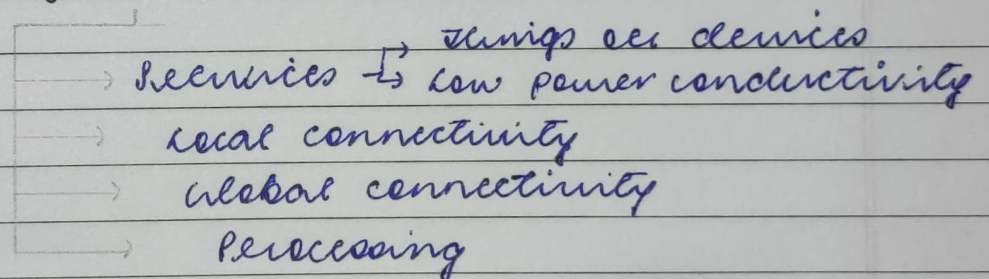 Things or devices
Services → Low power conductivity
Local connectivity
Global connectivity
Processing